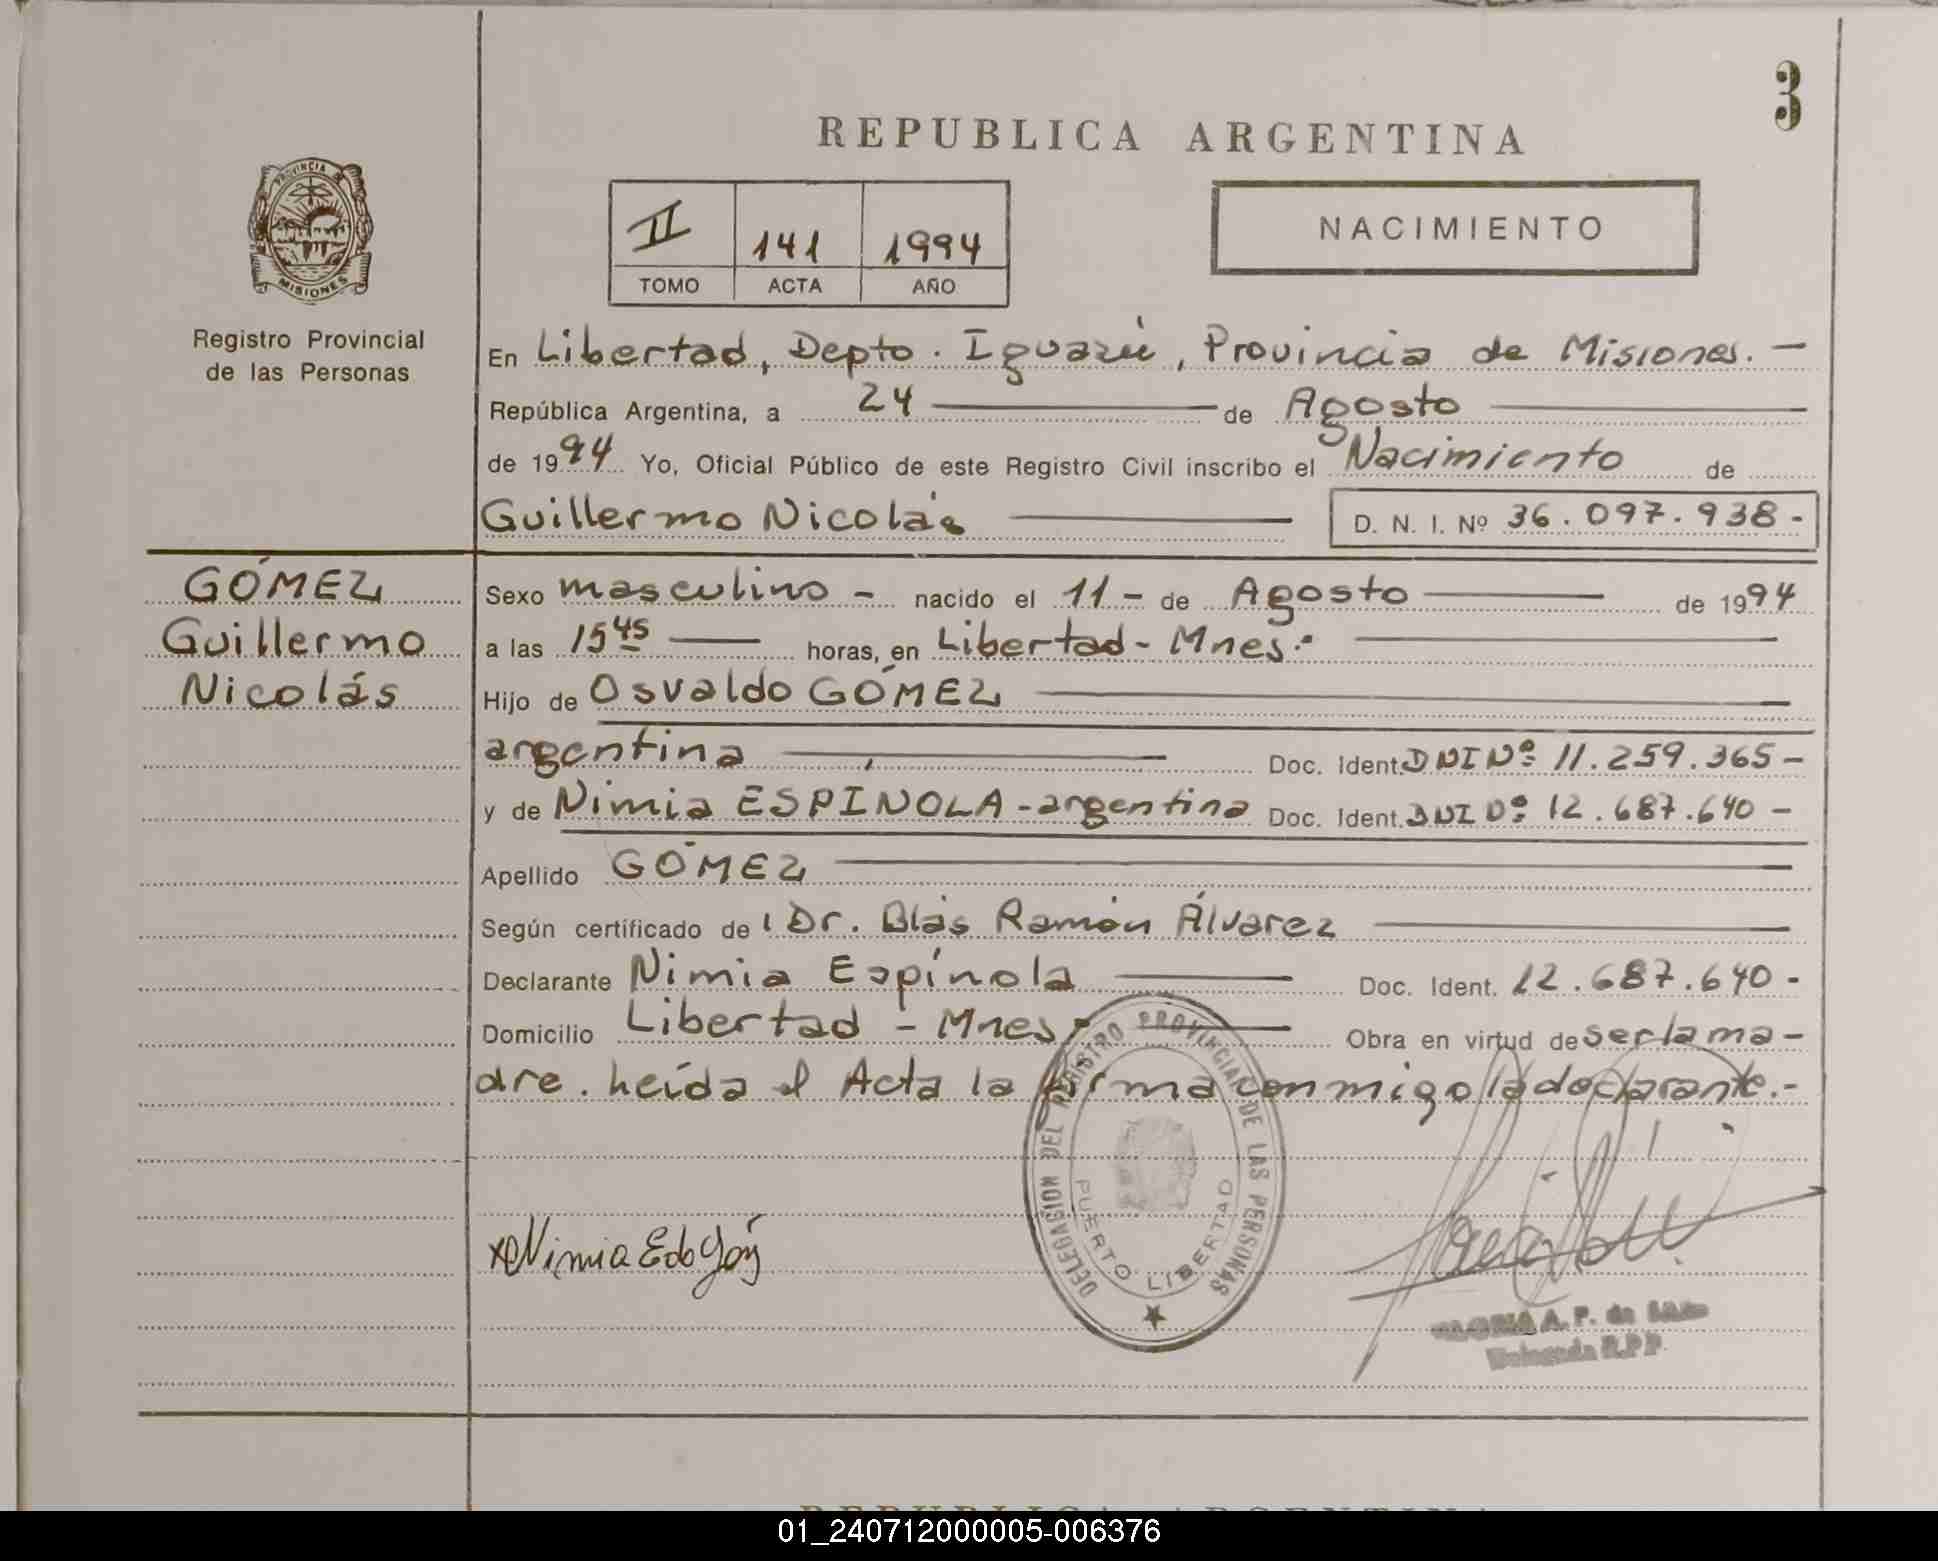 3
REPUBLICA ARGENTINA
PROVINCIA DE
MISIONES
Registro Provincial
de las Personas
II 141 1994
TOMO ACTA AÑO
NACIMIENTO
En Libertad, Depto. Iguazú, Provincia de Misiones. -
República Argentina, a 24 de Agosto
de 1994 Yo, Oficial Público de este Registro Civil inscribo el Nacimiento de
Guillermo Nicolás D. N. I. Nº 36.097.938-
GÓMEZ
Guillermo
Nicolás
Sexo masculino - nacido el 11 - de Agosto de 1994
a las 15 45 horas, en Libertad - Mnes.
Hijo de Osvaldo GÓMEZ
argentina Doc. Ident. DNI Nº 11.259.365 -
y de Nimia ESPINOLA - argentina Doc. Ident. DNI Nº 12.687.640 -
Apellido GÓMEZ
Según certificado de Dr. Blás Ramón Álvarez
Declarante Nimia Espínola Doc. Ident. 12.687.640 -
Domicilio Libertad - Mnes. Obra en virtud de ser la ma-
dre. Leída el Acta la firma conmigo la declarante. -
DELEGACION DEL REGISTRO PROVINCIAL DE LAS PERSONAS
PUERTO LIBERTAD
Nimia
GLORIA A. P. de
Delegada R.P.P.
01_240712000005-006376